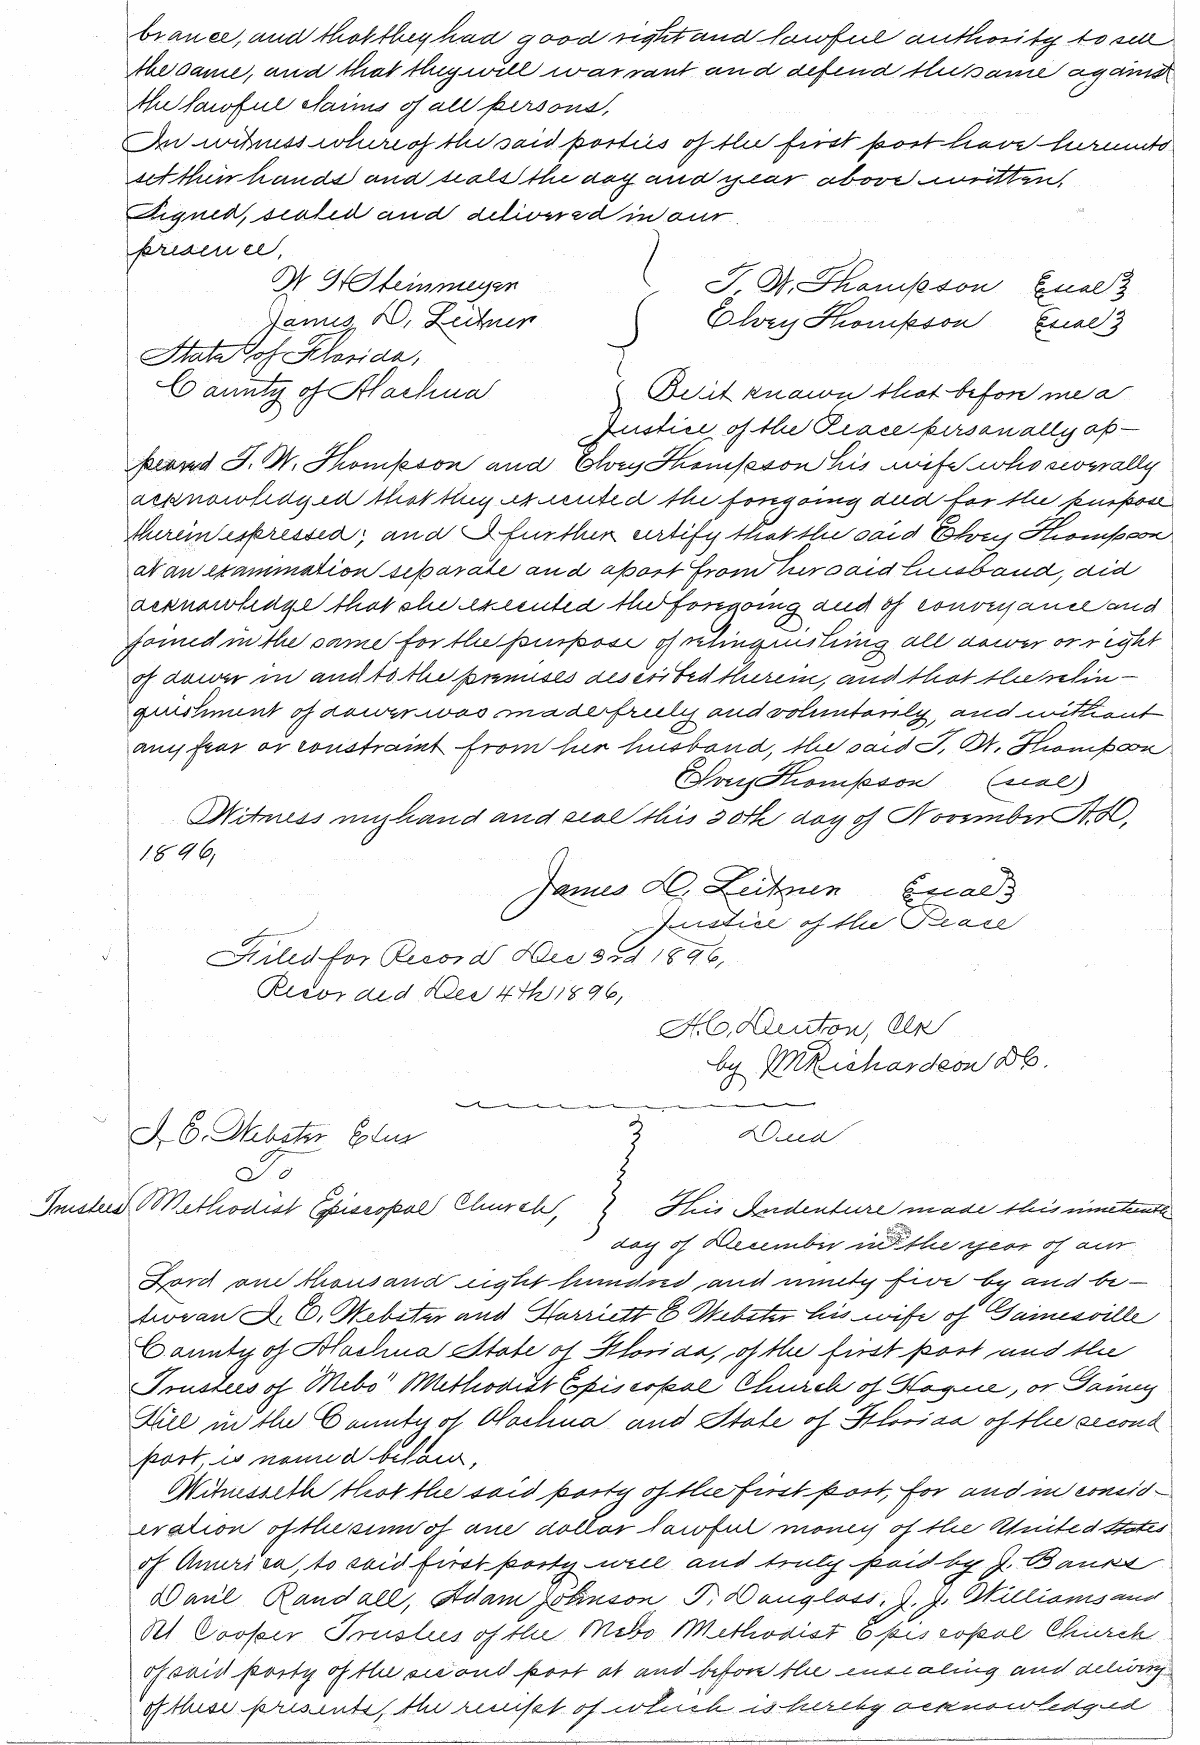 brance, and that they had good right and lawful authority to sell
the same, and that they will warrant and defend the same against
the lawful claims of all persons,
In witness whereof the said parties of the first part have hereunto
set their hands and seals the day and year above written,
Signed, sealed and delivered in our
presence,
W H Steinmeyer T. W. Thompson {seal}
James D. Leitner Elvey Thompson {seal}
State of Florida,
County of Alachua Be it known that before me a
Justice of the Peace personally ap-
peared T. W. Thompson and Elvey Thompson his wife who severally
acknowledged that they executed the foregoing deed for the purpose
therein expressed; and I further certify that the said Elvey Thompson
at an examination separate and apart from her said husband, did
acknowledge that she executed the foregoing deed of conveyance and
joined in the same for the purpose of relinquishing all dower or right
of dower in and to the premises described therein, and that the relin-
quishment of dower was made freely and voluntarily, and without
any fear or constraint from her husband, the said T. W. Thompson
Elvey Thompson (seal)
Witness my hand and seal this 30th day of November A.D.
1896,
James D. Leitner {seal}
Justice of the Peace
Filed for Record Dec 3rd 1896,
Recorded Dec 4th 1896,
H.C. Denton, Clk
by M Richardson DC.
I. E. Webster Etux Deed
To
Trustees Methodist Episcopal Church, This Indenture made this nineteenth
day of December in the year of our
Lord one thousand eight hundred and ninety five by and be-
tween I. E. Webster and Harriett E Webster his wife of Gainesville
County of Alachua State of Florida, of the first part and the
Trustees of "Mebo" Methodist Episcopal Church of Hague, or Gainey
Hill in the County of Alachua and State of Florida of the second
part, is named below,
Witnesseth that the said party of the first part, for and in consid-
eration of the sum of one dollar lawful money of the United States
of America, to said first party well and truly paid by J. Banks
Danl Randall, Adam Johnson T. Douglass, J. J. Williams and
Cooper Trustees of the Mebo Methodist Episcopal Church
of said party of the second part at and before the ensealing and delivery
of these presents, the receipt of which is hereby acknowledged